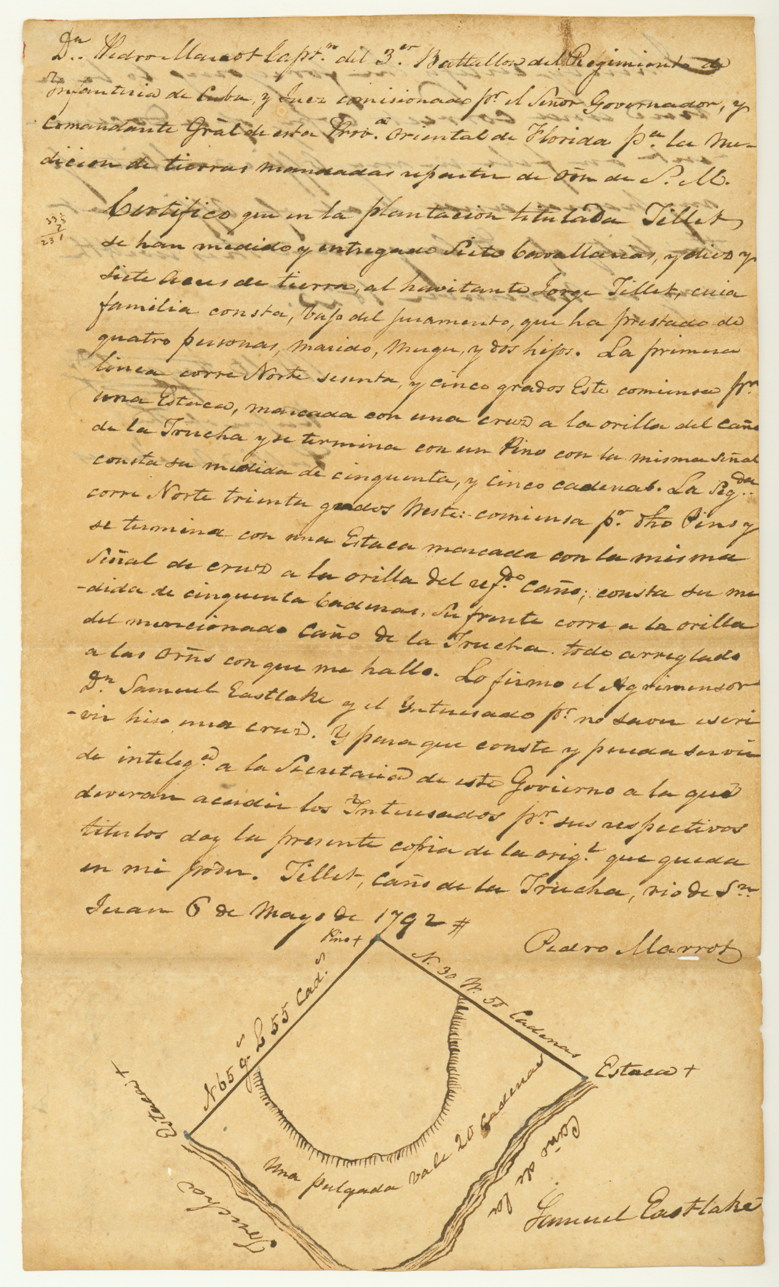 Dn. Pedro Marrot Captn. del 3er. Batallon del Regimiento de
Infanteria de Cuba, y Juez comisionado pr. el Señor Governador, y
Comandante Gral de esta Prova. oriental de Florida pa. la Me-
dicion de tierras mandadas repartir de orñ de S. M.
Certifico que en la plantacion titulada Tillet
se han medido y entregado Siete Cavallarias, y diez y
siete Acres de tierra, al havitante Jorge Tillet, cuia
familia consta, bajo del juramento, que ha prestado de
quatro personas, marido, Muger, y dos hijos. La primera
linea corre Norte sesenta, y cinco grados Este comiensa pr.
una Estaca, marcada con una cruz a la orilla del Caño
de la Trucha y se termina con un Pino con la misma Señal
consta su medida de cinquenta, y cinco cadenas. La Segda.
corre Norte trienta grados Weste: comiensa pr. dho Pino y
se termina con una Estaca marcada con la misma
Señal de cruz a la orilla del refdo. caño; consta su me
-dida de cinquenta Cadenas. Su frente corre a la orilla
del mencionado Caño de la Trucha. todo arreglado
a las orñs con que me hallo. Lo firmo el Agrimensor
Dn. Samuel Eastlake y el Ynteresado pr. no saver escri
-vir hiso una cruz. Y para que conste y pueda servir
de inteliga. a la Secretaria de este Govierno a la que
deveran acudir los Interesados pr. sus respectivos
titulos doy la presente copia de la origl. que queda
en mi poder. Tillet, Caño de la Trucha, rio de Sn.
Juan 6 de Mayo de 1792 #
Pedro Marrot
Pino +
N 65 gs. E 55 Cads.
N. 30 W. 50 Cadenas
Estaca +
Estaca +
Una pulgada vale 20 Cadenas
Caño de la
Trucha
Samuel Eastlake